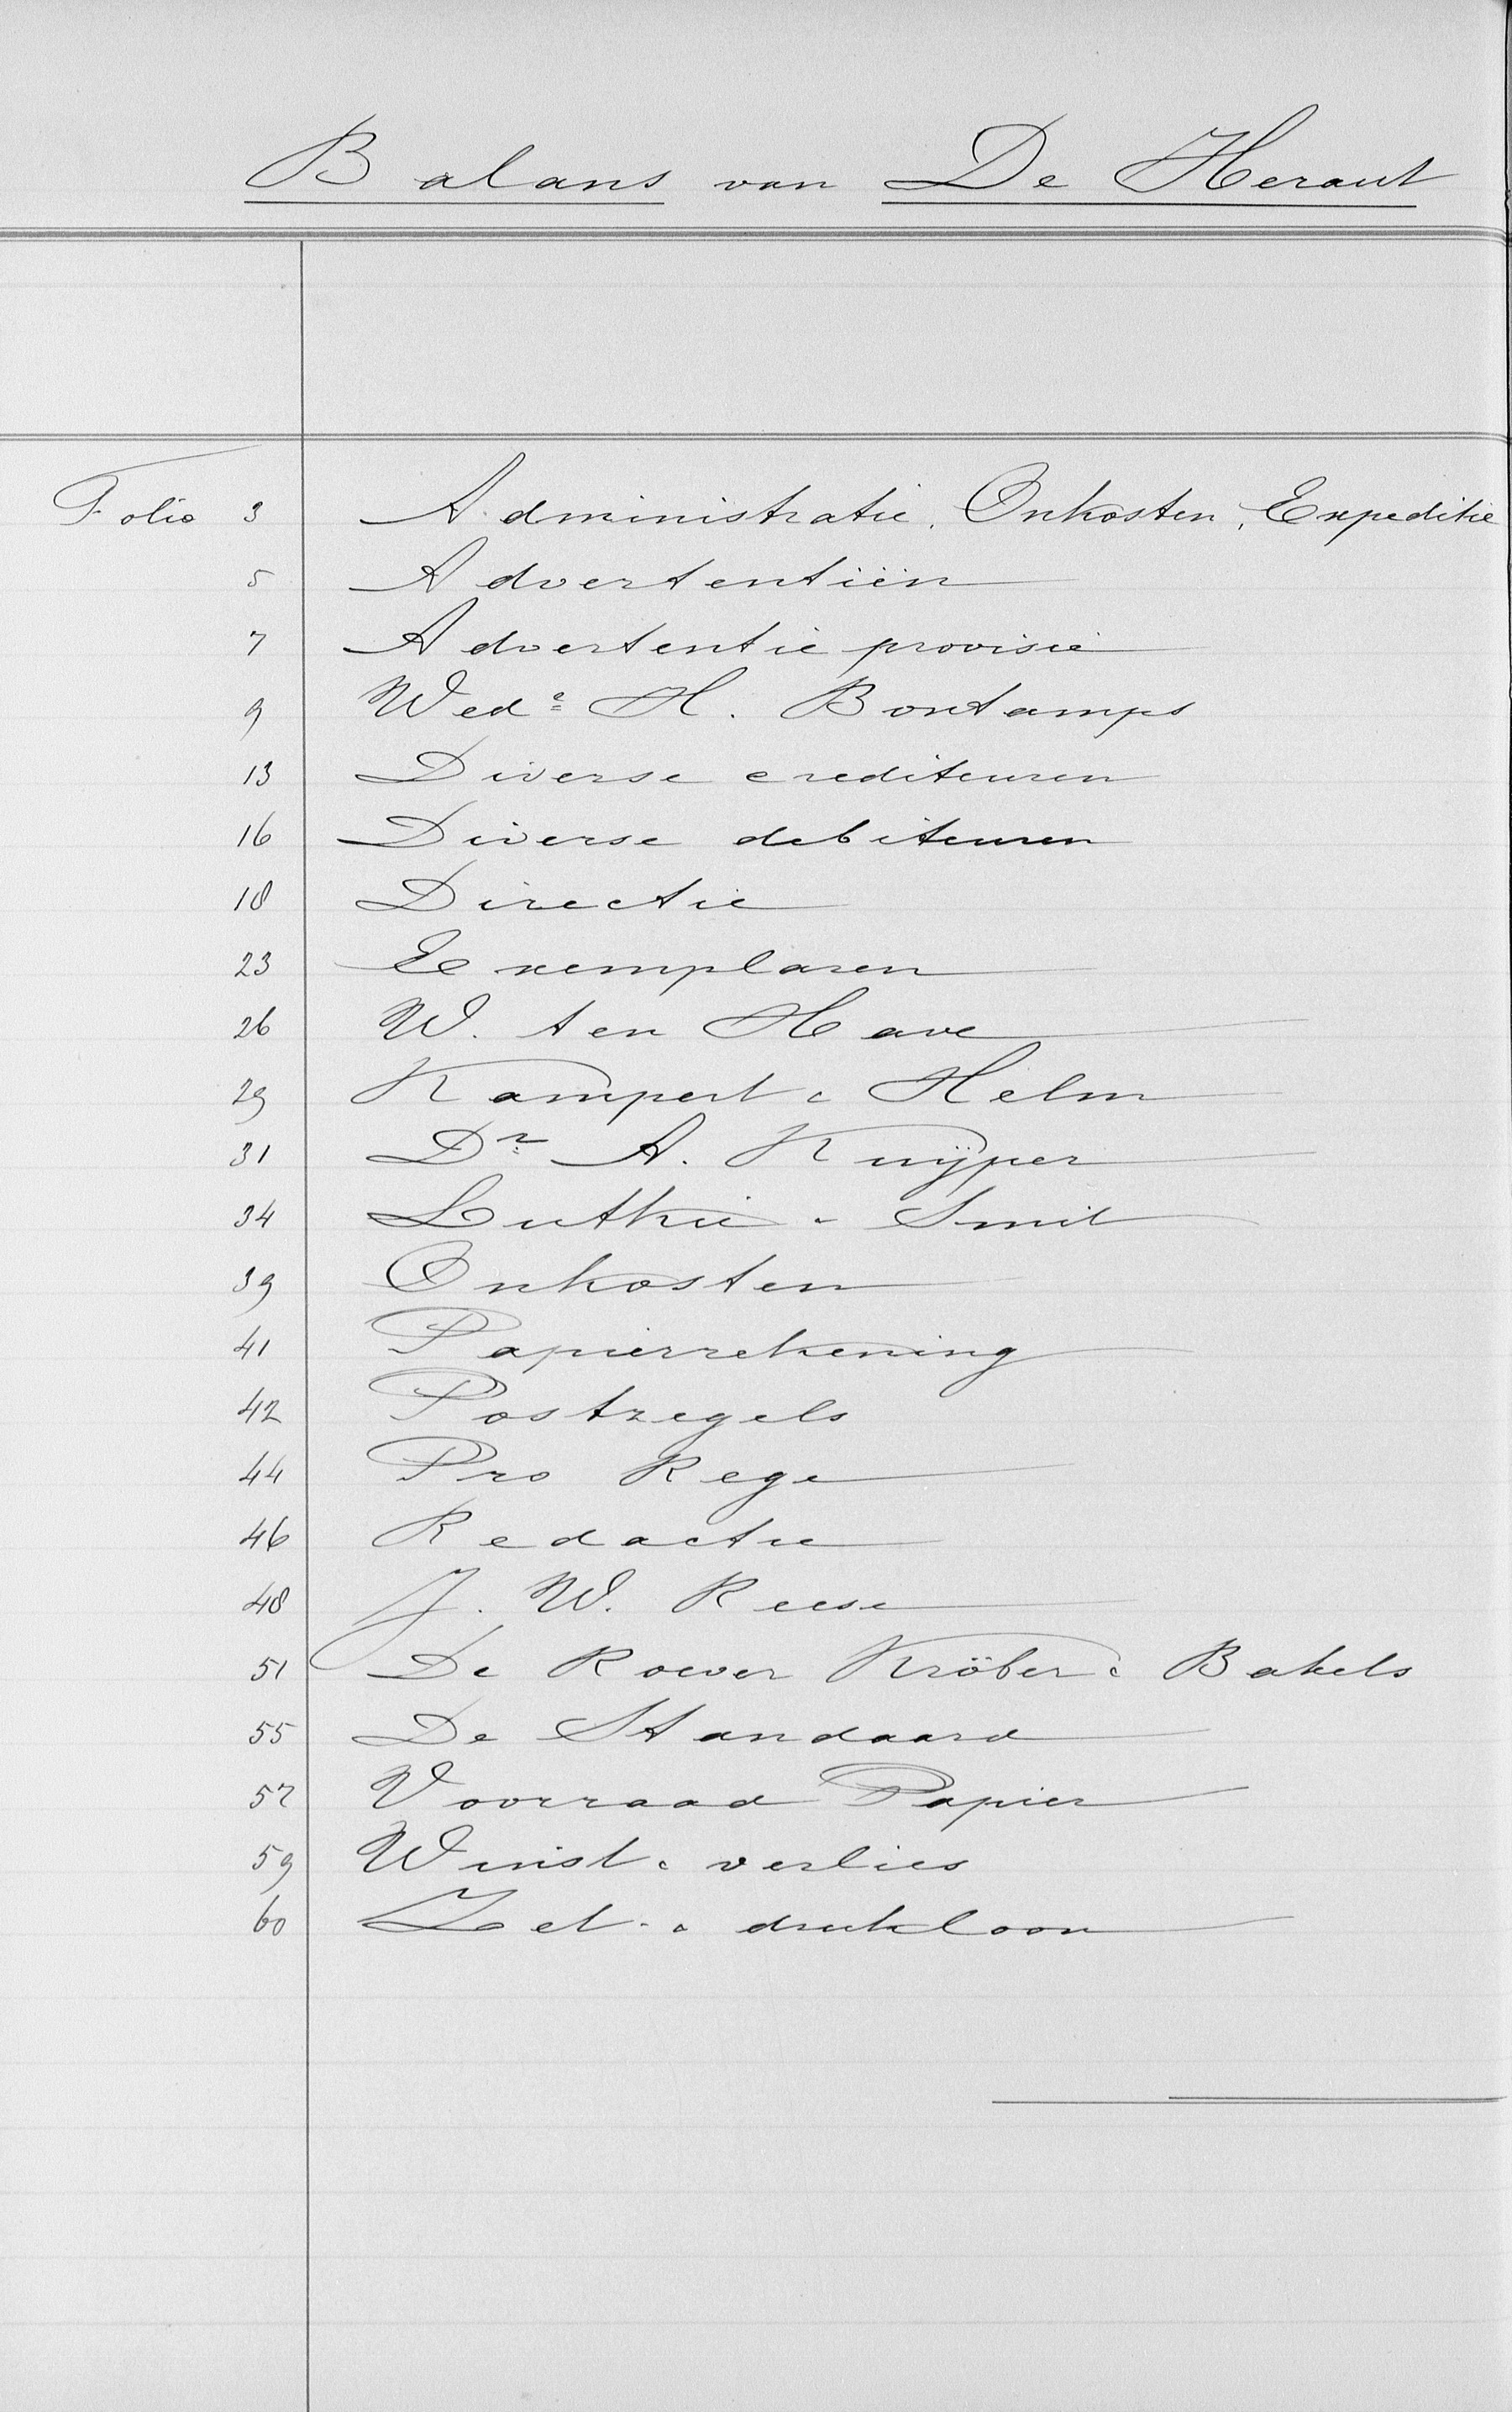 Balans van De Heraut
Folio 3 Administratie, Onkosten, Expeditie
5 Advertentiën
7 Advertentie provisie
9 Wede H. Bontamps
13 Diverse crediteuren
16 Diverse debiteuren
18 Directie
23 Exemplaren
26 W. ten Have
29 Kampert & Helm
31 Dr A. Kuÿper
34 Luthie & Smit
39 Onkosten
41 Papierrekening
42 Postzegels
44 Pro Rege
46 Redactie
48 J. W. Reese
51 De Roever Kröber & Bakels
55 De Standaard
57 Voorraad Papier
59 Winst & verlies
60 Zet- & drukloon